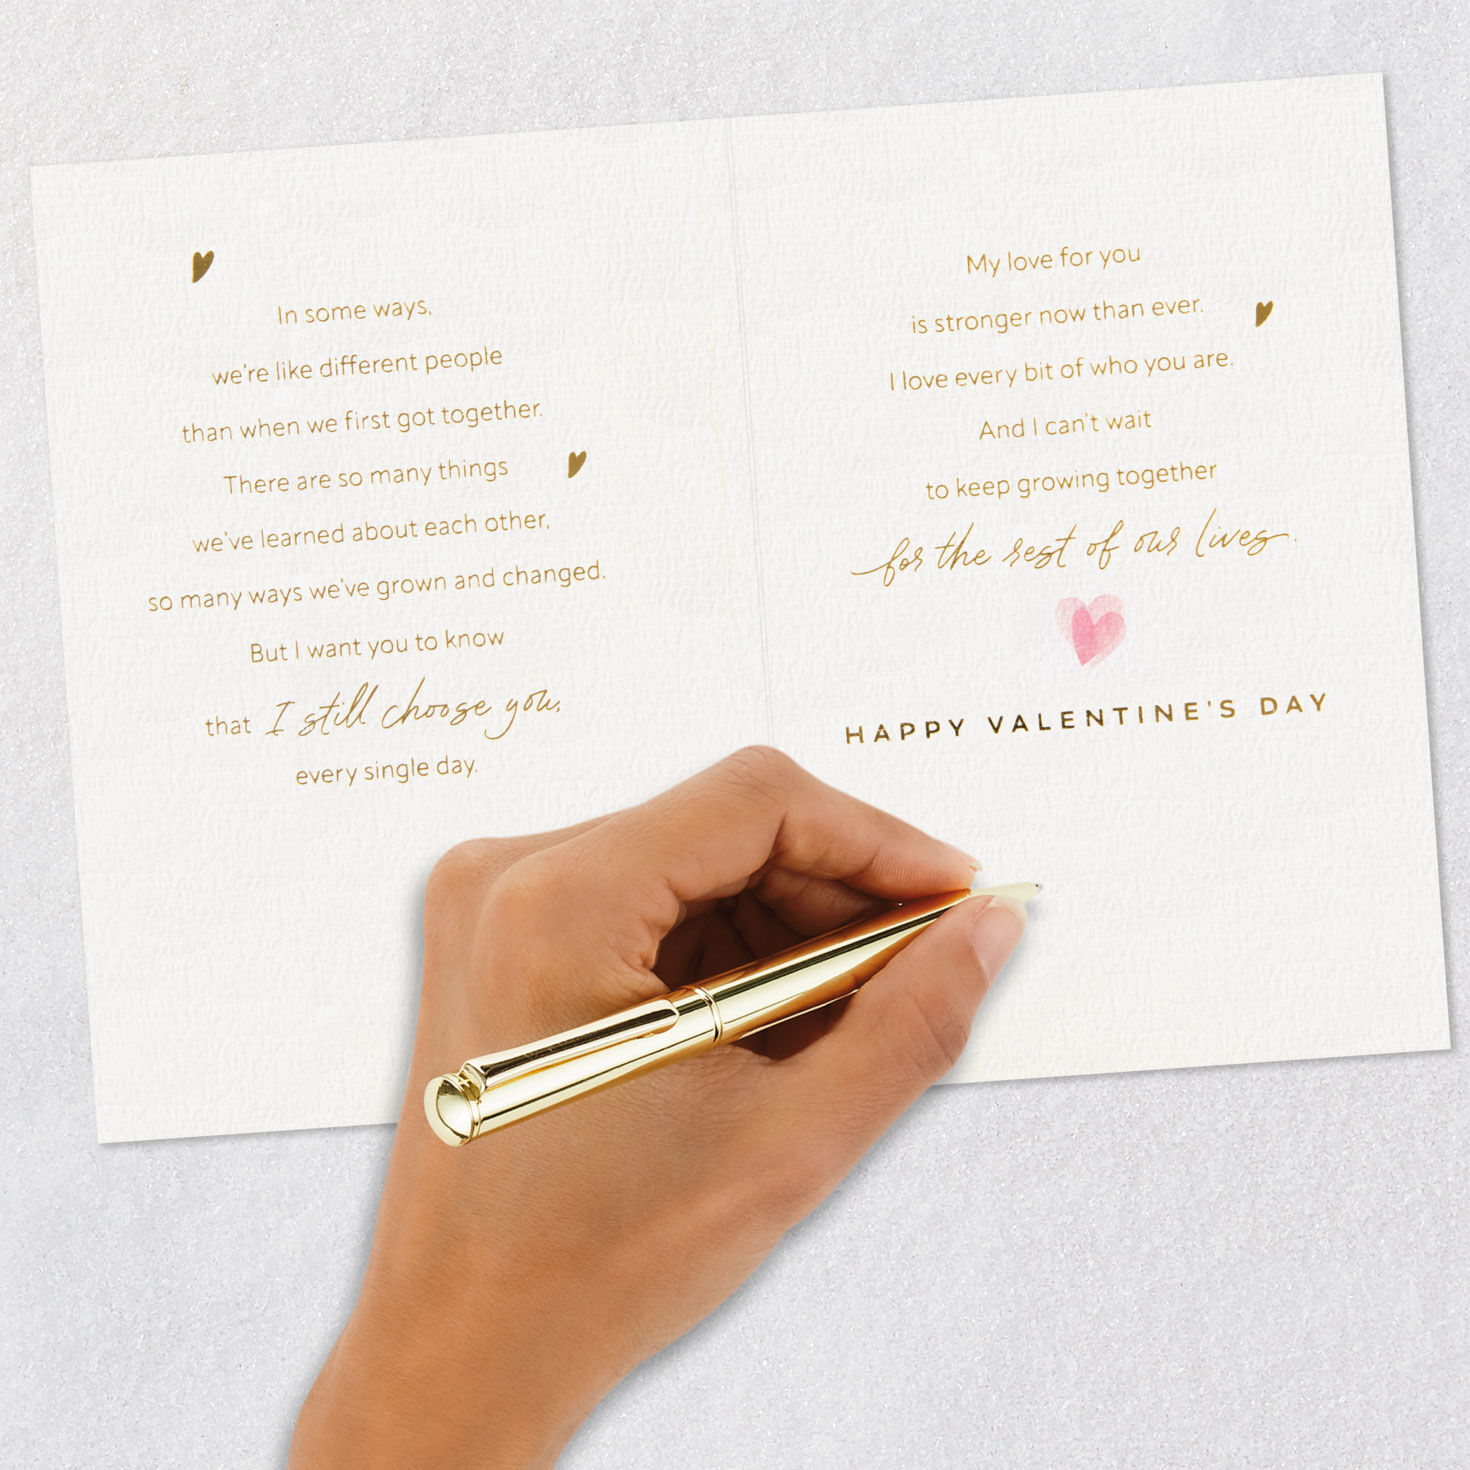 In some ways,
we're like different people
than when we first got together.
There are so many things
we've learned about each other,
so many ways we've grown and changed.
But I want you to know
that I still choose you,
every single day.
My love for you
is stronger now than ever.
I love every bit of who you are.
And I can't wait
to keep growing together
for the rest of our lives.
HAPPY VALENTINE'S DAY